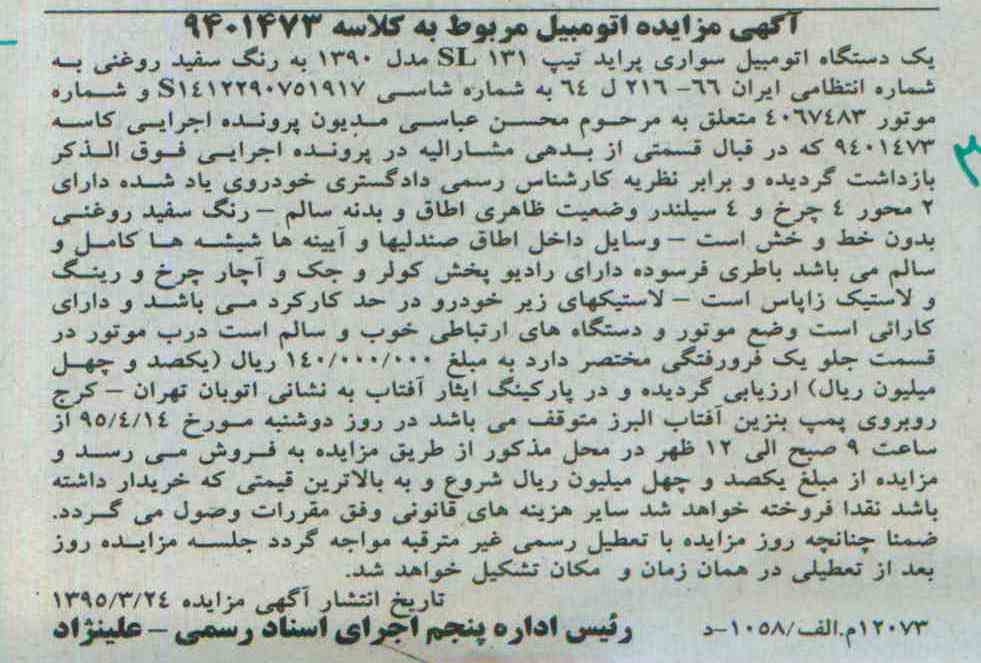 آگهی مزایده اتومبیل مربوط به کلاسه ۹۴۰۱۴۷۳
یک دستگاه اتومبیل سواری پراید تیپ ۱۳۱ SL مدل ۱۳۹۰ به رنگ سفید روغنی به
شماره انتظامی ایران ۶۶- ۲۱۶ ل ۶٤ به شماره شاسی S۱٤۱۲۲۹۰۷۵۱۹۱۷ و شماره
موتور ٤۰۶۷٤۸۳ متعلق به مرحوم محسن عباسی مدیون پرونده اجرایی کاسه
۹٤۰۱٤۷۳ که در قبال قسمتی از بدهی مشارالیه در پرونده اجرایی فوق الذکر
بازداشت گردیده و برابر نظریه کارشناس رسمی دادگستری خودروی یاد شده دارای
۲ محور ٤ چرخ و ٤ سیلندر وضعیت ظاهری اطاق و بدنه سالم – رنگ سفید روغنی
بدون خط و خش است – وسایل داخل اطاق صندلیها و آیینه ها شیشه ها کامل و
سالم می باشد باطری فرسوده دارای رادیو پخش کولر و جک و آچار چرخ و رینگ
و لاستیک زاپاس است – لاستیکهای زیر خودرو در حد کارکرد می باشد و دارای
کارائی است وضع موتور و دستگاه های ارتباطی خوب و سالم است درب موتور در
قسمت جلو یک فرورفتگی مختصر دارد به مبلغ ۱٤۰/۰۰۰/۰۰۰ ریال (یکصد و چهل
میلیون ریال) ارزیابی گردیده و در پارکینگ ایثار آفتاب به نشانی اتوبان تهران – کرج
روبروی پمپ بنزین آفتاب البرز متوقف می باشد در روز دوشنبه مورخ ۹۵/٤/۱٤ از
ساعت ۹ صبح الی ۱۲ ظهر در محل مذکور از طریق مزایده به فروش می رسد و
مزایده از مبلغ یکصد و چهل میلیون ریال شروع و به بالاترین قیمتی که خریدار داشته
باشد نقدا فروخته خواهد شد سایر هزینه های قانونی وفق مقررات وصول می گردد.
ضمنا چنانچه روز مزایده با تعطیل رسمی غیر مترقبه مواجه گردد جلسه مزایده روز
بعد از تعطیلی در همان زمان و مکان تشکیل خواهد شد.
تاریخ انتشار آگهی مزایده ۱۳۹۵/۳/۲٤
۱۲۰۷۳م.الف/۱۰۵۸-د رئیس اداره پنجم اجرای اسناد رسمی – علینژاد